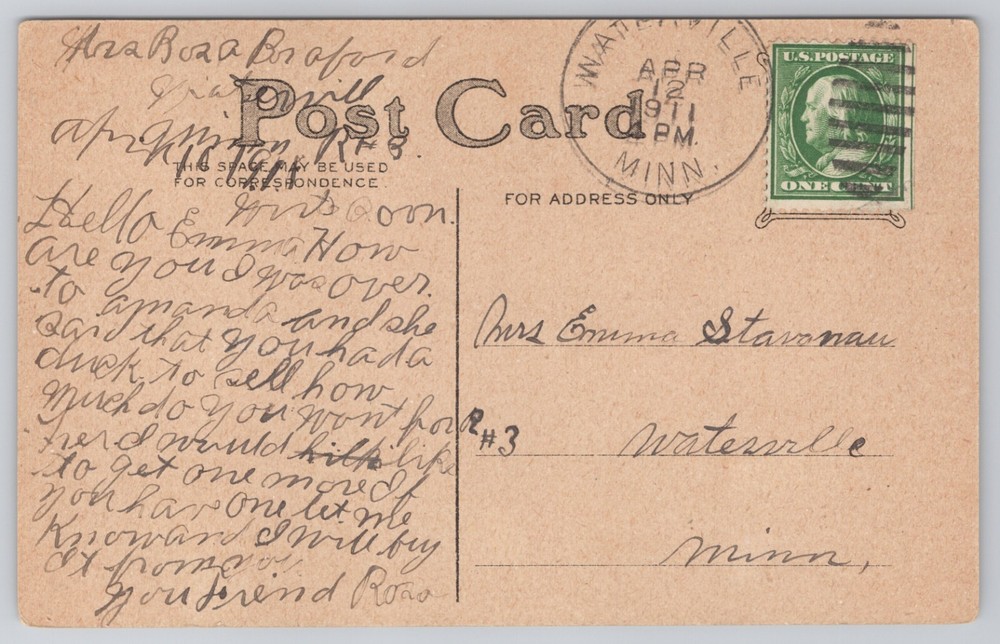 Mrs Rosa Braford
Watervill
Minn R#3
Apr 10 1911
Post Card
THIS SPACE MAY BE USED
FOR CORRESPONDENCE
FOR ADDRESS ONLY
WATERVILLE
APR
12
1911
PM.
MINN.
U.S. POSTAGE
ONE CENT
Soon.
Hello Emma How
are you I was over
to amanda and she
said that you had a
duck to sell how
Much do you want for
her I would like
to get one more If
you have one let me
Know and I will buy
It from you
your friend Rosa
Mrs Emma Stavanau
R#3 Waterville
Minn,